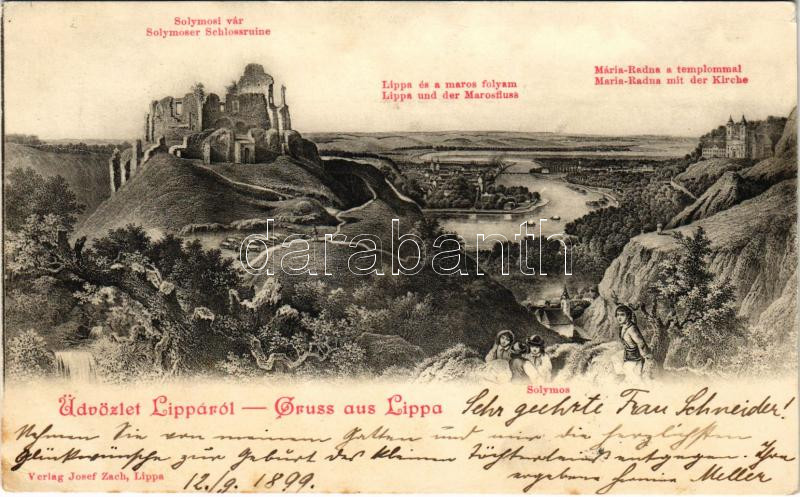 Solymosi vár
Solymoser Schlossruine
Lippa és a maros folyam
Lippa und der Marosfluss
Mária-Radna a templommal
Maria-Radna mit der Kirche
darabanth
Solymos
Üdvözlet Lippáról — Gruss aus Lippa
Sehr geehrte Frau Schneider!
Nehmen Sie von meinem Gatten und mir die herzlichsten
Glückwünsche zur Geburt des kleinen Töchterleins entgegen. Ihre
ergebene Meller
12./9. 1899.
Verlag Josef Zach, Lippa